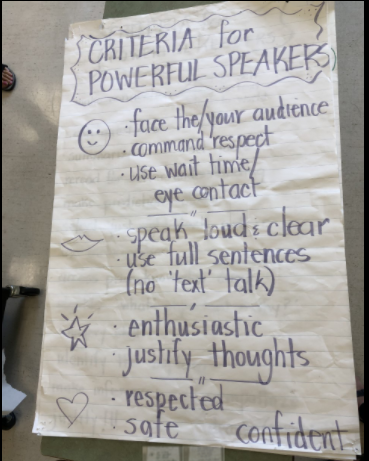 CRITERIA for
POWERFUL SPEAKERS
· face the/your audience
· command respect
· use wait time/
eye contact
"
· speak loud & clear
· use full sentences
(no 'text' talk)
· enthusiastic
· justify thoughts
"
· respected
· safe confident